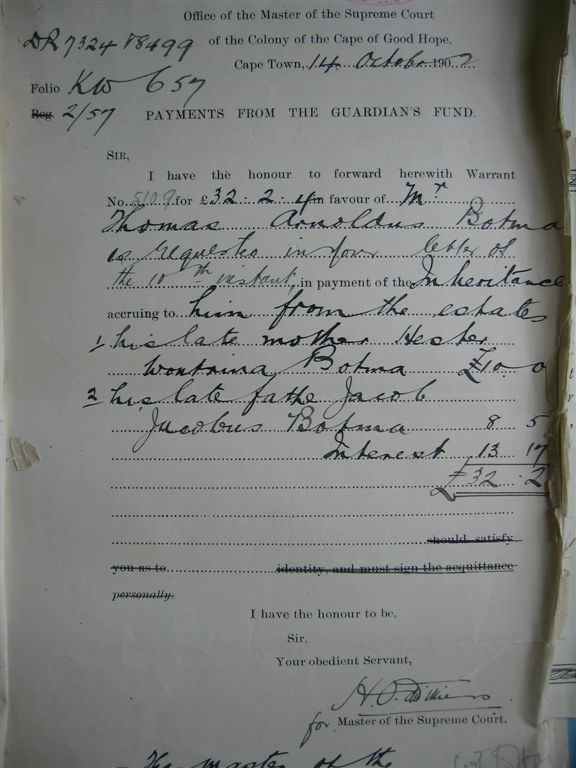 Office of the Master of the Supreme Court
DR 7324 & 8499
of the Colony of the Cape of Good Hope,
Cape Town, 14 October 1902
Folio KW 657
Reg 2/57
PAYMENTS FROM THE GUARDIAN'S FUND.
SIR,
I have the honour to forward herewith Warrant
No. 5109 for £32 - 2 - 4 in favour of Mr
Thomas Arnoldus Botma
as requested in your letter of
the 10th instant, in payment of the Inheritance
accruing to him from the estates
1 his late mother Hester
Botma £10 . 0
2 his late fathe Jacob
Jacobus Botma 8 5
Interest 13 17
£32 . 2
should satisfy
you as to identity, and must sign the acquittance
personally.
I have the honour to be,
Sir.
Your obedient Servant,
for Master of the Supreme Court.
The master of the